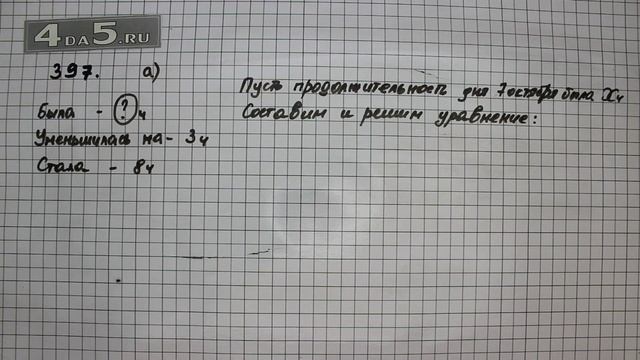 4DA5.RU
397. а)
Была - ? ч
Уменьшилась на - 3 ч
Стала - 8 ч
Пусть продолжительность дня 7 октября была X ч
Составим и решим уравнение: